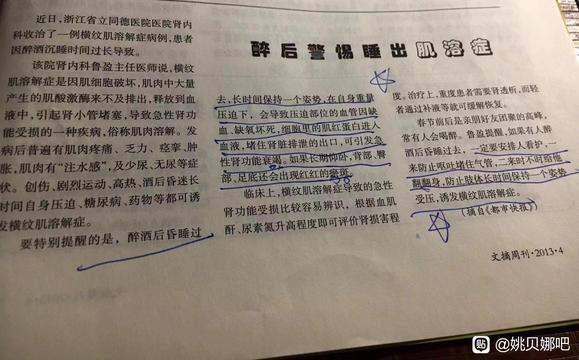 醉后警惕睡出肌溶症
近日,浙江省立同德医院医院肾内
科收治了一例横纹肌溶解症病例,患者
因醉酒沉睡时间过长导致。
该院肾内科鲁盈主任医师说,横纹
肌溶解症是因肌细胞破坏,肌肉中大量
产生的肌酸激酶来不及排出,释放到血
液中,引起肾小管堵塞,导致急性肾功
能受损的一种疾病,俗称肌肉溶解。发
病后普遍有肌肉疼痛、乏力、痉挛、肿
胀,肌肉有“注水感”,及少尿、无尿等症
状。创伤、剧烈运动、高热、酒后昏迷长
时间自身压迫、糖尿病、药物等都可诱
发横纹肌溶解症。
要特别提醒的是,醉酒后昏睡过
去,长时间保持一个姿势,在自身重量
压迫下,会导致压迫部位的血管因缺
血、缺氧坏死,细胞里的肌红蛋白进入
血液,堵住肾脏排泄的出口,可引发急
性肾功能衰竭。如果长期仰卧,背部、臀
部、足底还会出现红红的瘀斑。
临床上,横纹肌溶解症导致的急性
肾功能受损比较容易辨识,根据血肌
酐、尿素氮升高程度即可评价肾损害程
度。治疗上,重度患者需要肾透析,而轻
者通过补液等就可缓解恢复。
春节前后是亲朋好友团聚的高峰,
常有人会喝醉。鲁盈提醒,如果有人醉
酒后昏睡过去,一定要安排人看护,一
来防止呕吐堵住气管,二来不时帮他
翻翻身,防止肢体长时间保持一个姿势
受压,诱发横纹肌溶解症。
(摘自《都市快报》)
文摘周刊·2013·4
贴 @姚贝娜吧